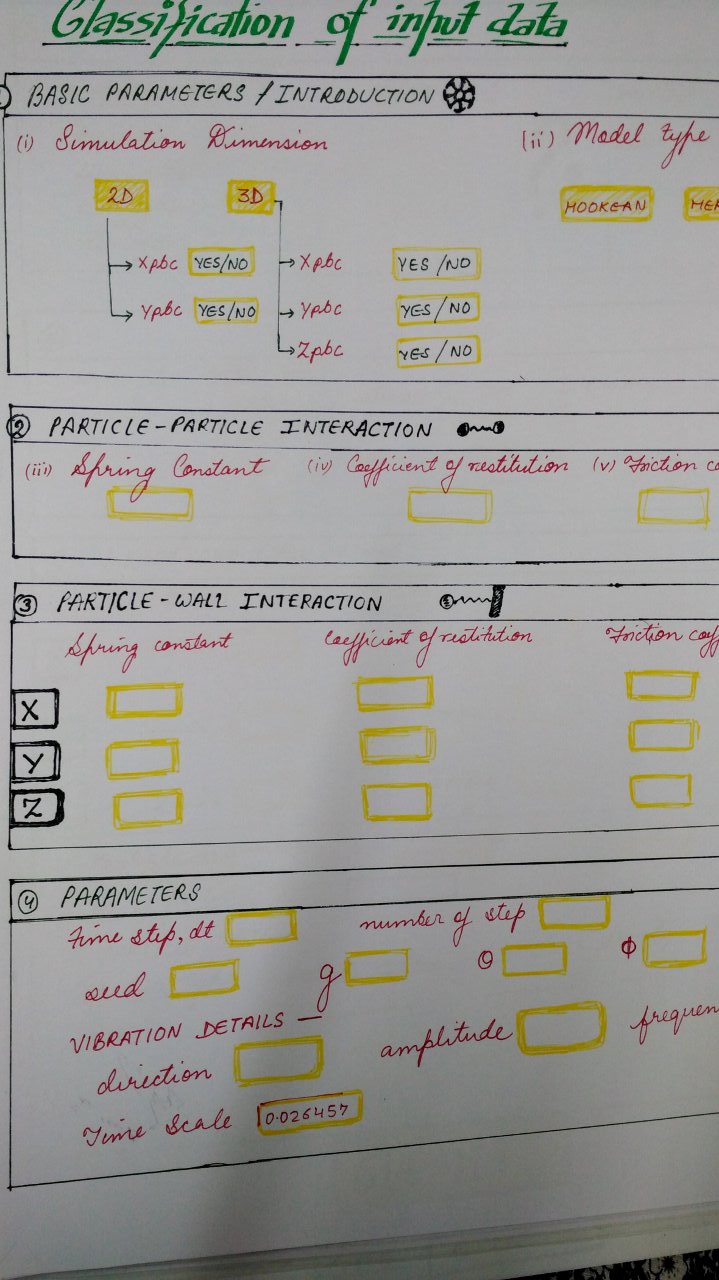 Classification of input data
BASIC PARAMETERS / INTRODUCTION
(i) Simulation Dimension (ii) Model type
2D 3D HOOKEAN
Xpbc YES/NO Xpbc YES / NO
Ypbc YES/NO Ypbc YES / NO
Zpbc YES / NO
② PARTICLE-PARTICLE INTERACTION
(iii) Spring Constant (iv) Coefficient of restitution (v) Friction co
③ PARTICLE-WALL INTERACTION
Spring constant Coefficient of restitution Friction coeff
X
Y
Z
④ PARAMETERS
Time step, dt number of step
seed g θ Φ
VIBRATION DETAILS —
direction amplitude frequen
Time Scale 0.026457